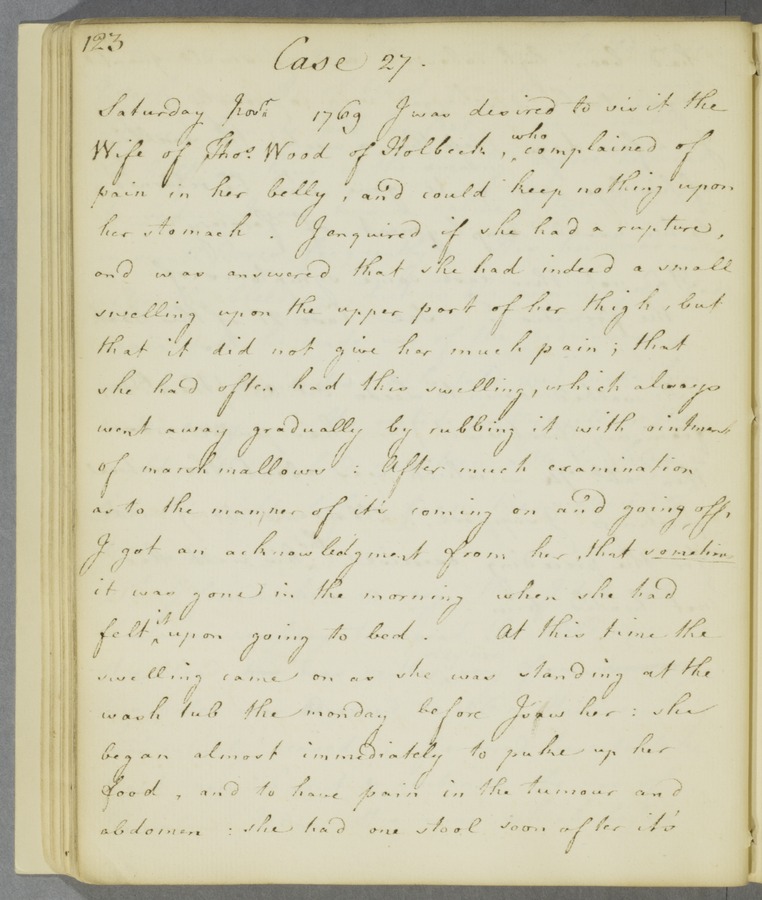 123
Case 27.
Saturday Novr. 1769 I was desired to visit the
Wife of Thos. Wood of Holbeck, who complained of
pain in her belly, and could keep nothing upon
her stomach. I enquired if she had a rupture,
and was answered that she had indeed a small
swelling upon the upper part of her thigh, but
that it did not give her much pain; that
she had often had this swelling, which always
went away gradually by rubbing it with ointment
of marshmallows: After much examination
as to the manner of it's coming on and going off,
I got an acknowledgment from her, that sometimes
it was gone in the morning when she had
felt it upon going to bed. At this time the
swelling came on as she was standing at the
wash tub the monday before I saw her: she
began almost immediately to puke up her
food, and to have pain in the tumour and
abdomen: she had one stool soon after it's